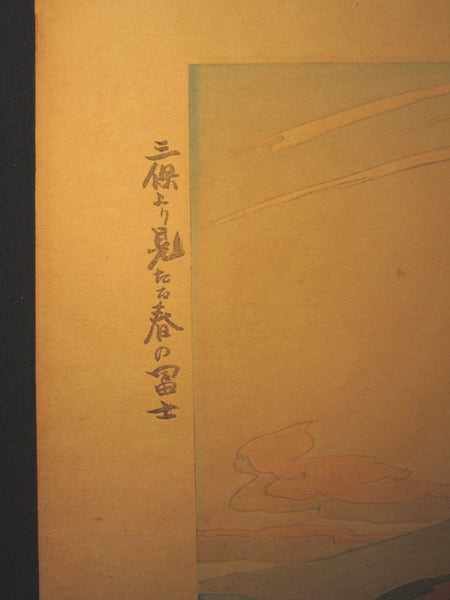 三保より見たる春の冨士